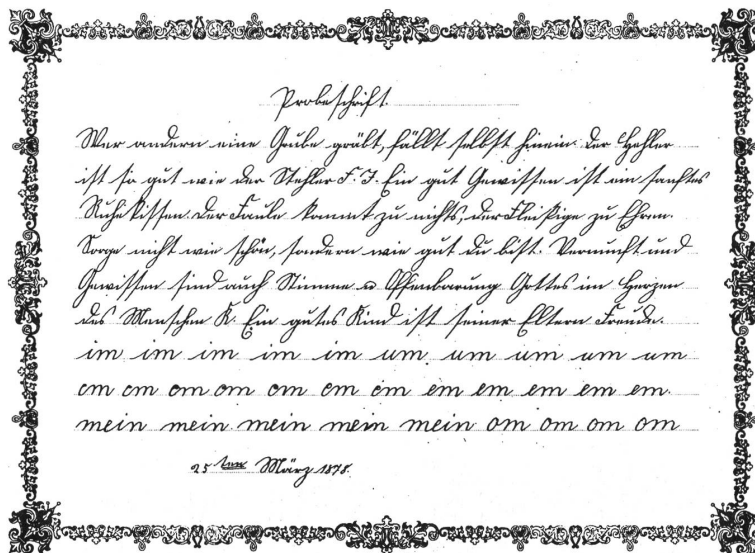 Probeschrift.
Wer andern eine Grube gräbt, fällt selbst hinein. Der Hehler
ist so gut wie der Stehler F. J. Ein gut Gewissen ist ein sanftes
Ruhekissen. Der Faule kommt zu nichts, der Fleißige zu Ehren.
Sorge nicht wie schön, sondern wie gut du bist. Vernunft und
Gewissen sind auch Stimme u Offenbarung Gottes im Herzen
des Menschen K. Ein gutes Kind ist seiner Eltern Freude.
im im im im im um um um um um
em em em em em em em em em em em em.
mein mein mein mein mein om om om om
25ten März 1878.